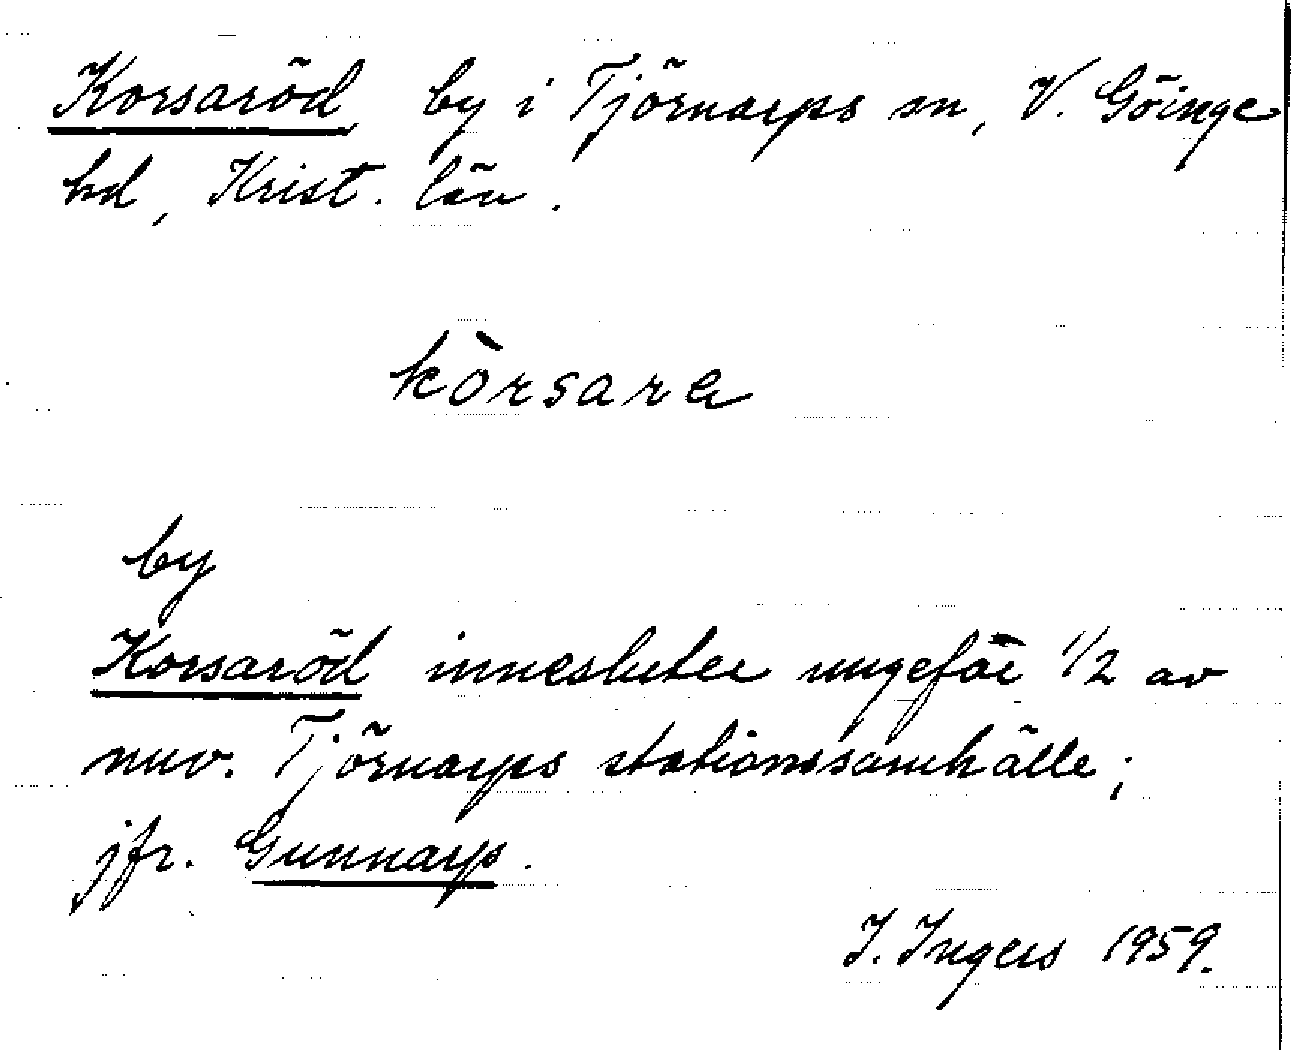 Korsaröd, by i Tjörnarps sn, V. Göinge
hd, Krist. län.
kòrsara
by
Korsaröd innesluter ungefär 1/2 av
nuv. Tjörnarps stationssamhälle;
jfr. Gunnarp.
I. Ingers 1959.